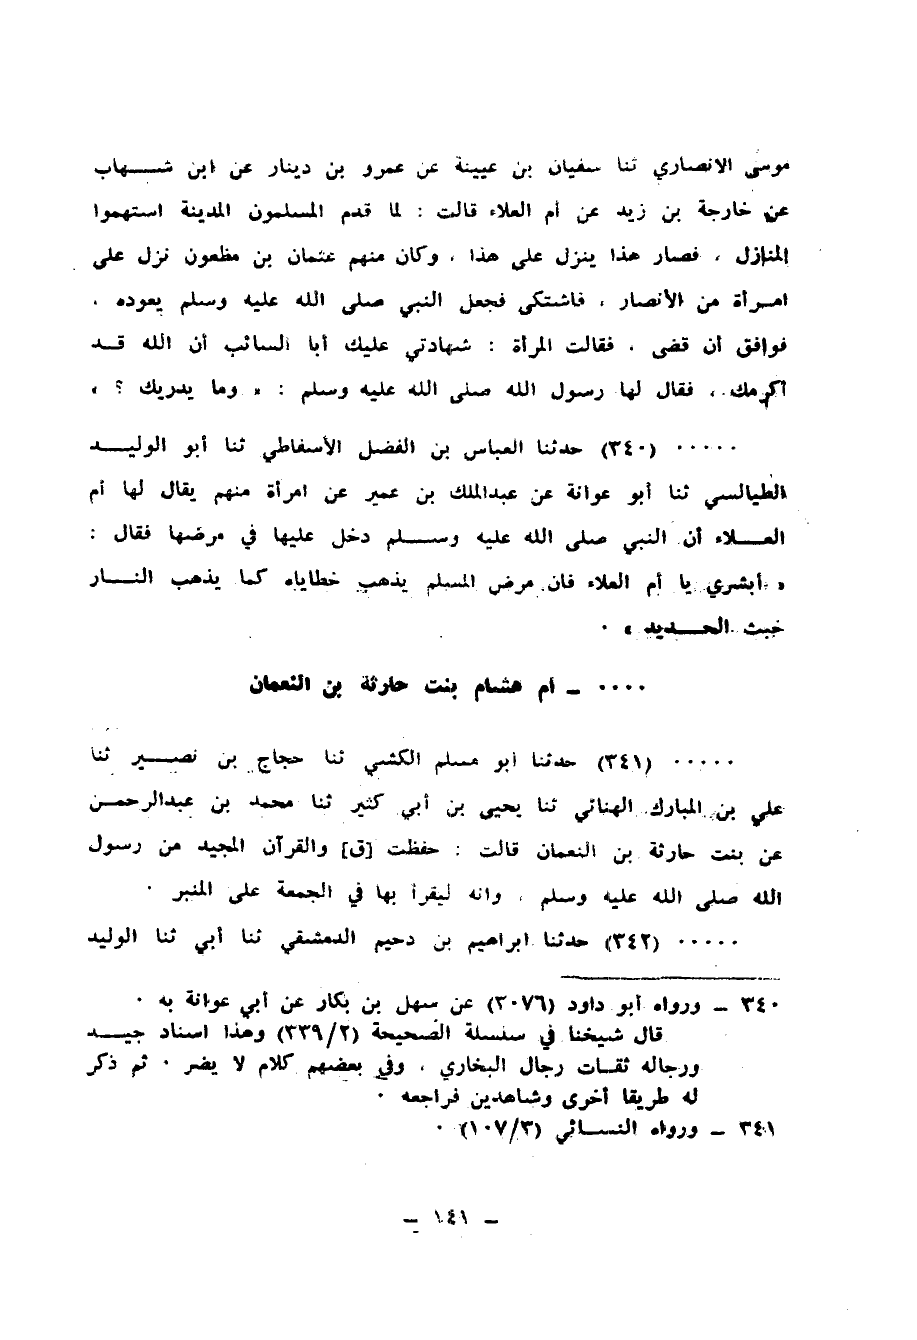 موسى الانصاري ثنا سفيان بن عيينة عن عمرو بن دينار عن ابن شهاب
عن خارجة بن زيد عن أم العلاء قالت : لما قدم المسلمون المدينة استهموا
المنازل ، فصار هذا ينزل على هذا ، وكان منهم عثمان بن مظعون نزل على
امرأة من الأنصار ، فاشتكى فجعل النبي صلى الله عليه وسلم يعوده ،
فوافق أن قضى ، فقالت المرأة : شهادتي عليك أبا السائب أن الله قد
أكرمك ، فقال لها رسول الله صلى الله عليه وسلم : « وما يدريك ؟ »
..... (٣٤٠) حدثنا العباس بن الفضل الأسفاطي ثنا أبو الوليد
الطيالسي ثنا أبو عوانة عن عبدالملك بن عمير عن امرأة منهم يقال لها أم
العلاء أن النبي صلى الله عليه وسلم دخل عليها في مرضها فقال :
« أبشري يا أم العلاء فان مرض المسلم يذهب خطاياه كما يذهب النار
خبث الحديد » .
.... ــ أم هشام بنت حارثة بن النعمان
..... (٣٤١) حدثنا أبو مسلم الكشي ثنا حجاج بن نصير ثنا
علي بن المبارك الهنائي ثنا يحيى بن أبي كثير ثنا محمد بن عبدالرحمن
عن بنت حارثة بن النعمان قالت : حفظت [ق] والقرآن المجيد من رسول
الله صلى الله عليه وسلم ، وانه ليقرأ بها في الجمعة على المنبر .
..... (٣٤٢) حدثنا ابراهيم بن دحيم الدمشقي ثنا أبي ثنا الوليد
٣٤٠ ــ ورواه أبو داود (٣٠٧٦) عن سهل بن بكار عن أبي عوانة به .
قال شيخنا في سلسلة الصحيحة (٣٣٩/٢) وهذا اسناد جيد
ورجاله ثقات رجال البخاري ، وفي بعضهم كلام لا يضر . ثم ذكر
له طريقا أخرى وشاهدين فراجعه .
٣٤١ ــ ورواه النسائي (١٠٧/٣) .
ــ ١٤١ ــ